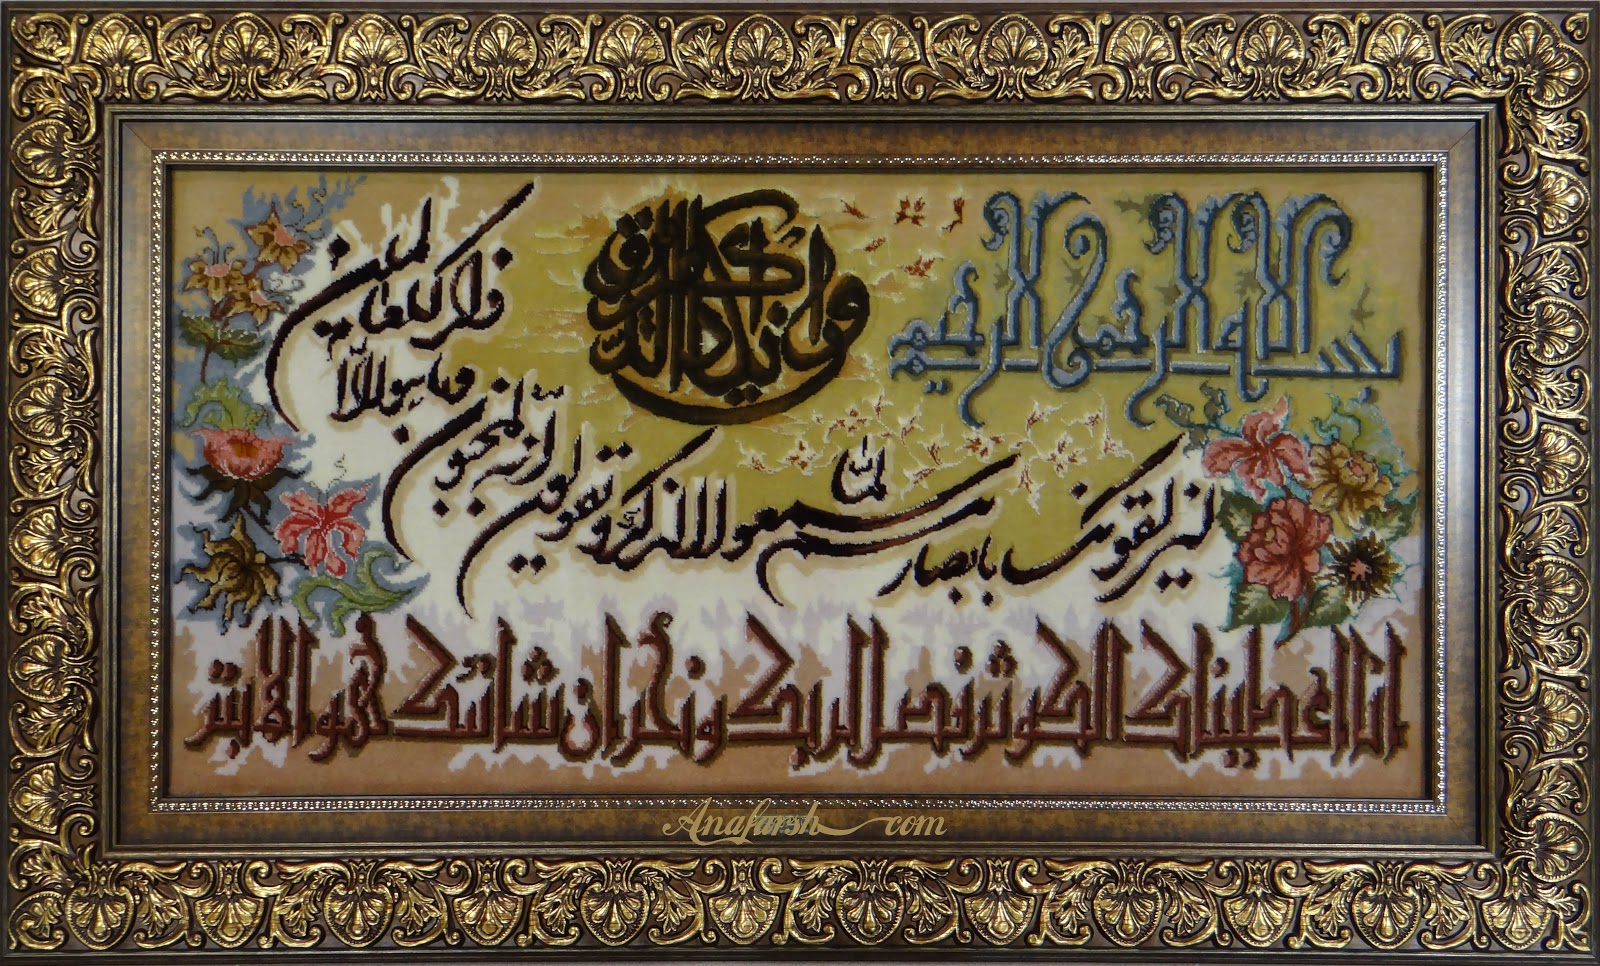 بسم الله الرحمن الرحیم
وان یکاد الذین کفروا
لیزلقونک بابصارهم لما سمعوا الذکر و یقولون انه لمجنون
وما هو الا ذکر للعالمین
انا اعطیناک الکوثر فصل لربک ونحر ان شانئک هو الابتر
Anafarsh.com